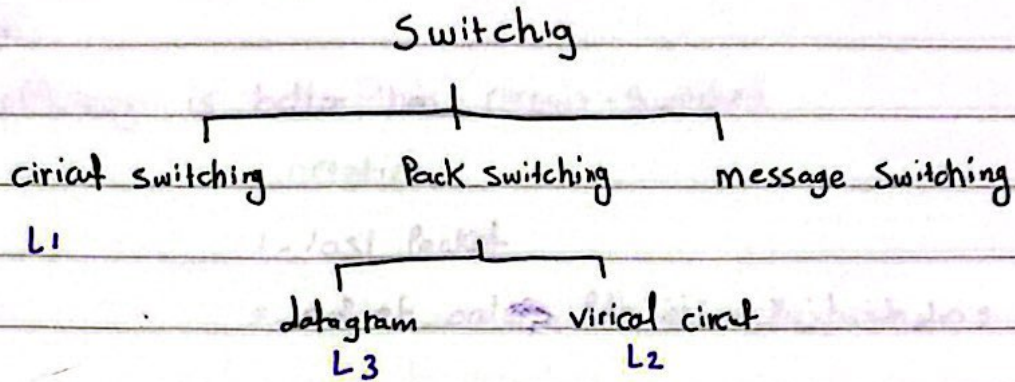 Switchig
ciricut switching Pack switching message Switching
L1
datagram virical circut
L3 L2